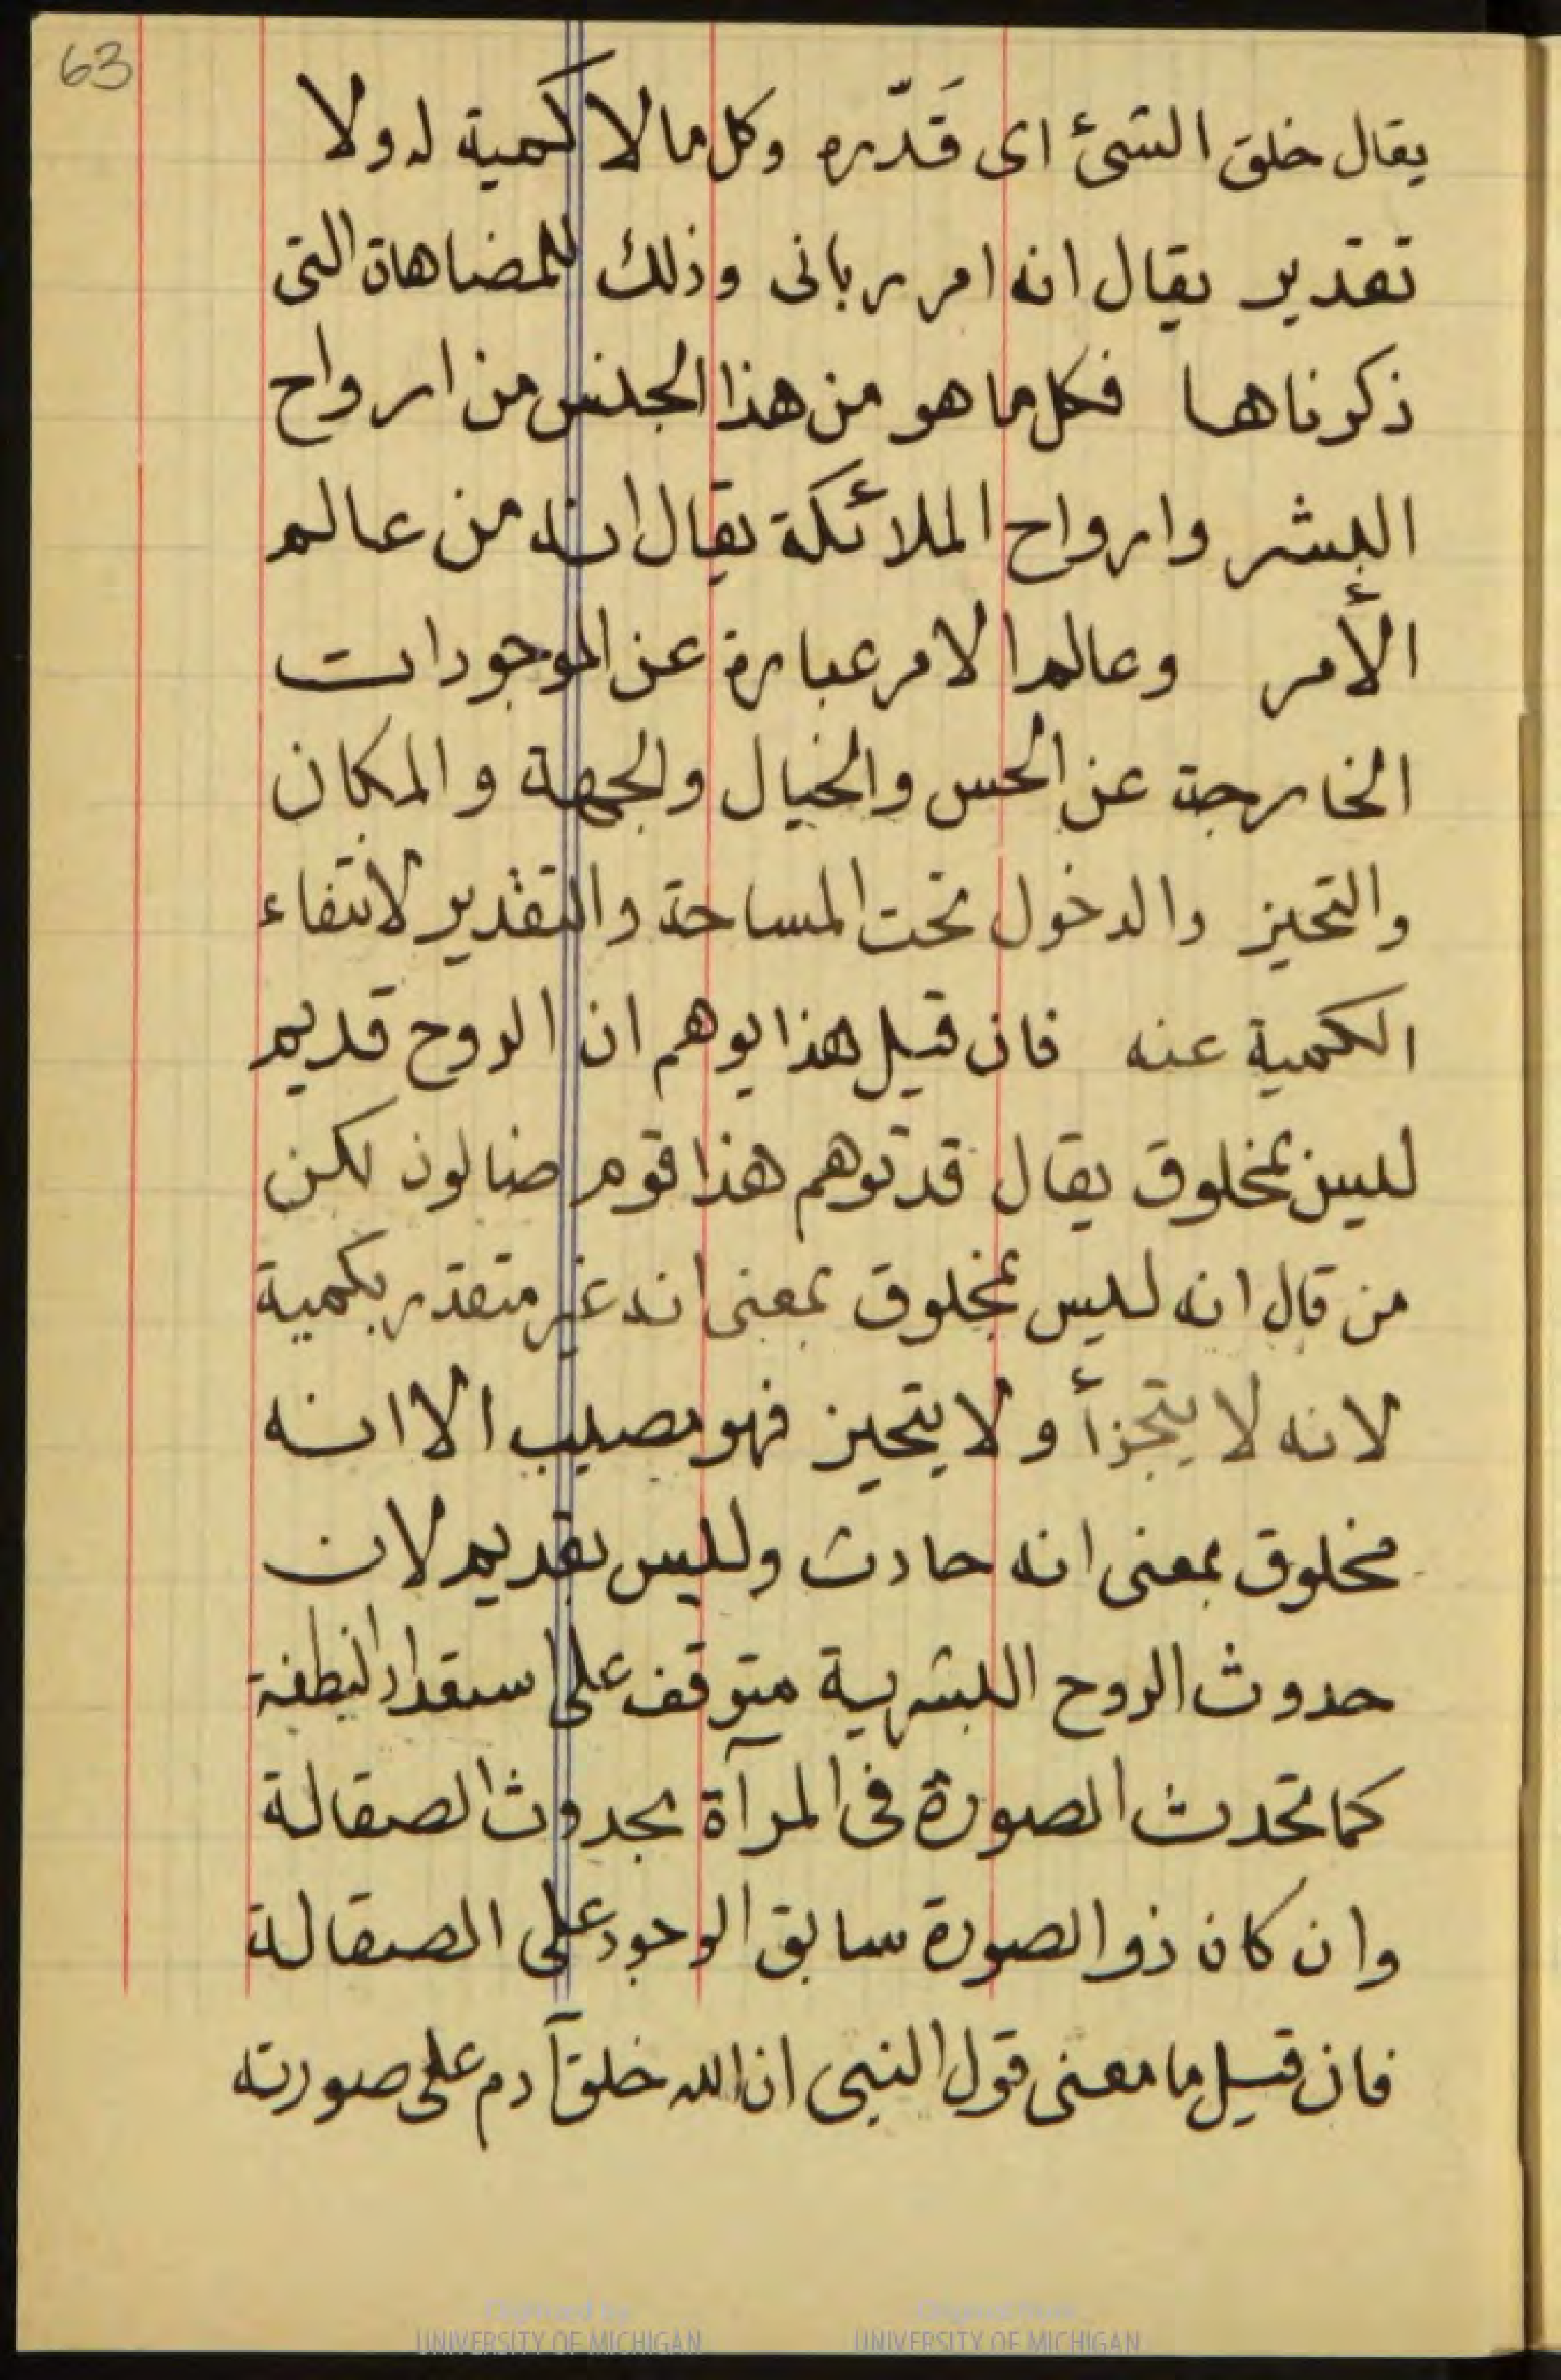 63
يقال خلق الشئ اى قَدّره وكل ما لا كمية له ولا
تقدير يقال انه امر ربانى وذلك للمضاهاة التى
ذكرناها فكل ما هو من هذا الجنس من ارواح
البشر وارواح الملائكة يقال انه من عالم
الأمر وعالم الامر عبارة عن الموجودات
الخارجة عن الحس والخيال والجهة والمكان
والتحيز والدخول تحت المساحة والتقدير لانتفاء
الكمية عنه فان قيل هذا يوهم ان الروح قديم
ليس بمخلوق يقال قد توهم هذا قوم ضالون لكن
من قال انه ليس بمخلوق بمعنى انه غير متقدر بكمية
لانه لا يتجزأ ولا يتحيز فهو مصيب الا انه
مخلوق بمعنى انه حادث وليس بقديم لان
حدوث الروح البشرية متوقف على استعداد النطفة
كما تحدث الصورة فى المرآة بحدوث الصقالة
وان كان ذو الصورة سابق الوجود على الصقالة
فان قيل ما معنى قول النبى ان الله خلق آدم على صورته
Digitized by
UNIVERSITY OF MICHIGAN
Original from
UNIVERSITY OF MICHIGAN